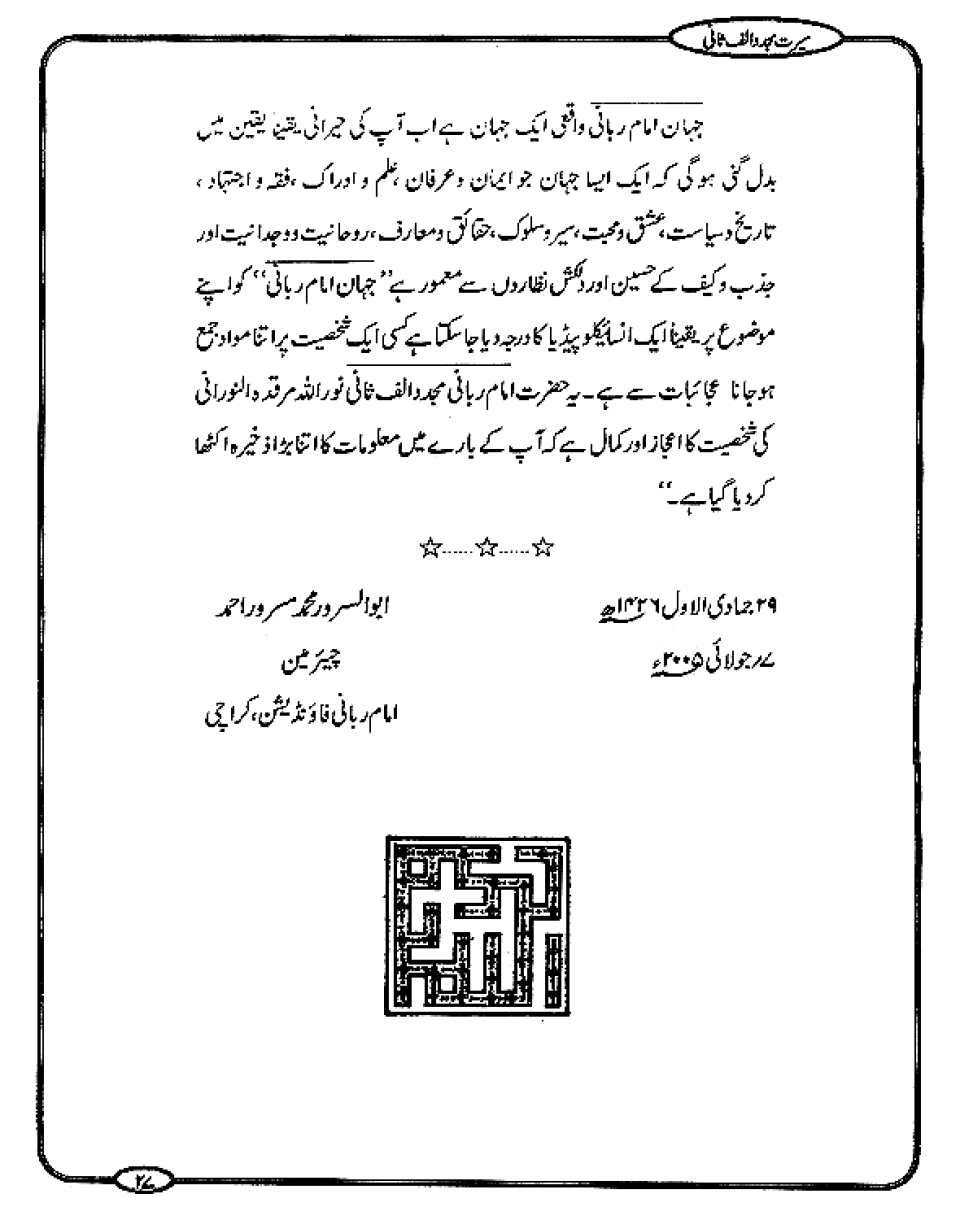 سیرت مجدد الف ثانی
جہان امام ربانی واقعی ایک جہان ہے اب آپ کی حیرانی یقیناً یقین میں
بدل گئی ہو گی کہ ایک ایسا جہان جو ایمان و عرفان ،علم و ادراک ،فقہ و اجتہاد ،
تاریخ و سیاست،عشق و محبت،سیر و سلوک،حقائق و معارف،روحانیت و وجدانیت اور
جذب و کیف کے حسین اور دلکش نظاروں سے معمور ہے ’’جہان امام ربانی‘‘ کو اپنے
موضوع پر یقیناً ایک انسائیکلوپیڈیا کا درجہ دیا جا سکتا ہے کسی ایک شخصیت پر اتنا مواد جمع
ہوجانا عجائبات سے ہے۔ یہ حضرت امام ربانی مجدد الف ثانی نور اللہ مرقدہ النورانی
کی شخصیت کا اعجاز اور کمال ہے کہ آپ کے بارے میں معلومات کا اتنا بڑا ذخیرہ اکٹھا
کر دیا گیا ہے۔‘‘
☆......☆......☆
۲۹ جمادی الاول ۱۴۲۶ھ ابوالسرور محمد مسرور احمد
۷؍جولائی ۲۰۰۵ء چیئرمین
امام ربانی فاؤنڈیشن،کراچی
۲۷